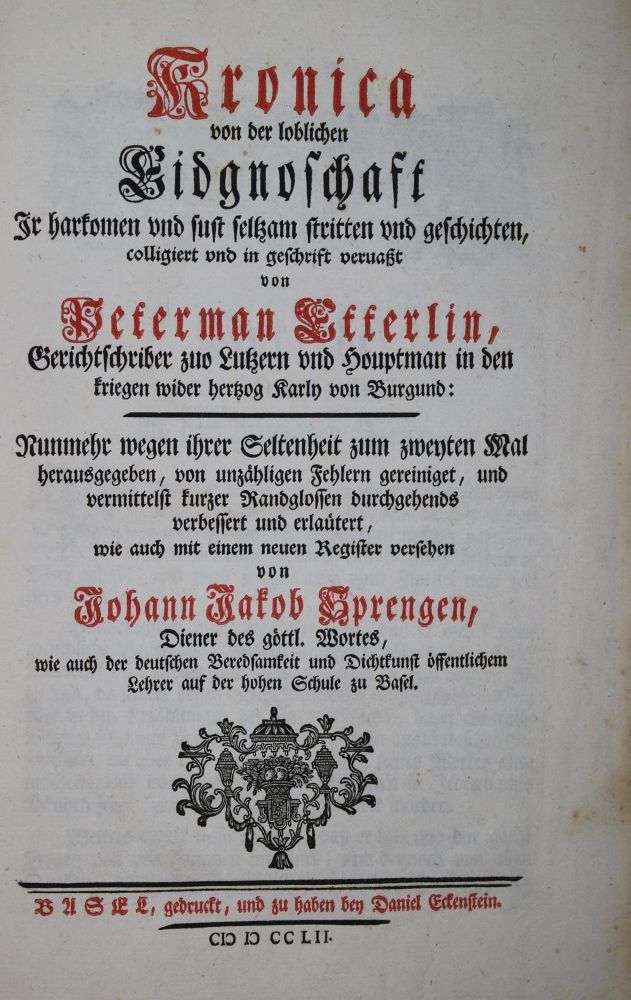 Kronica
von der loblichen
Eidgnoschaft
Jr harkomen vnd sust seltzam stritten vnd geschichten,
colligiert vnd in geschrift veruaßt
von
Peterman Etterlin,
Gerichtschriber zuo Lutzern vnd Houptman in den
kriegen wider hertzog Karly von Burgund:
Nunmehr wegen ihrer Seltenheit zum zweyten Mal
herausgegeben, von unzähligen Fehlern gereiniget, und
vermittelst kurzer Randglossen durchgehends
verbessert und erlaütert,
wie auch mit einem neuen Register versehen
von
Johann Jakob Sprengen,
Diener des göttl. Wortes,
wie auch der deutschen Beredsamkeit und Dichtkunst öffentlichem
Lehrer auf der hohen Schule zu Basel.
BASEL, gedruckt, und zu haben bey Daniel Eckenstein.
CIↃ IↃ CC LII.